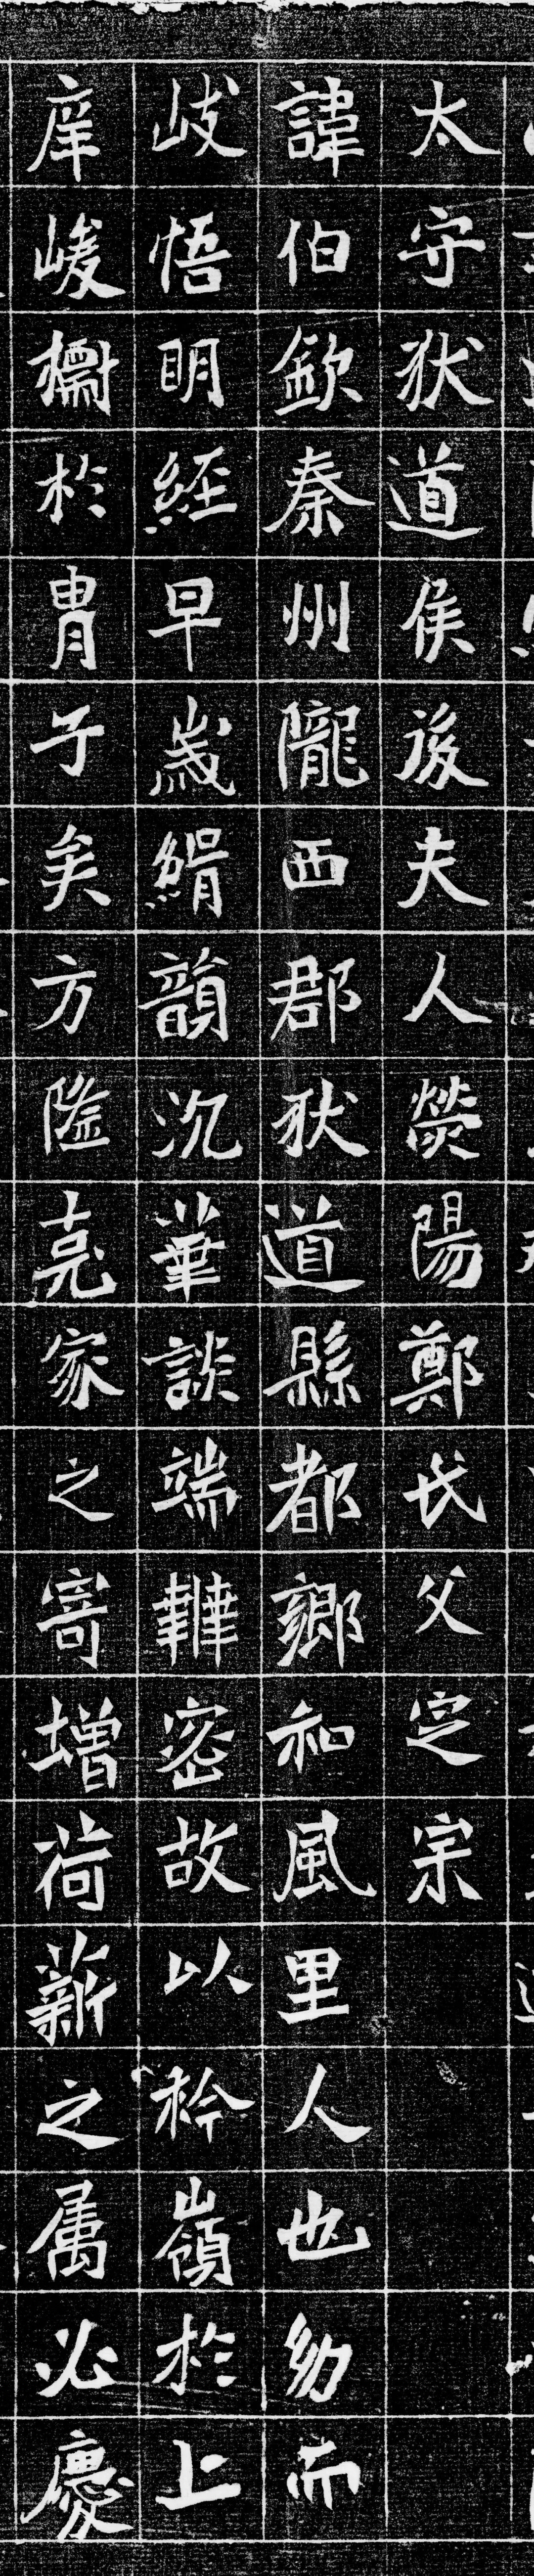 太守狄道侯後夫人熒陽鄭氏父定宗
諱伯欽秦州隴西郡狄道縣都鄉和風里人也幼而
岐悟明經早歲緝韻沉華談端韡密故以衿嶺於上
庠峻檷於胄子矣方隆克家之寄增荷薪之属必慶